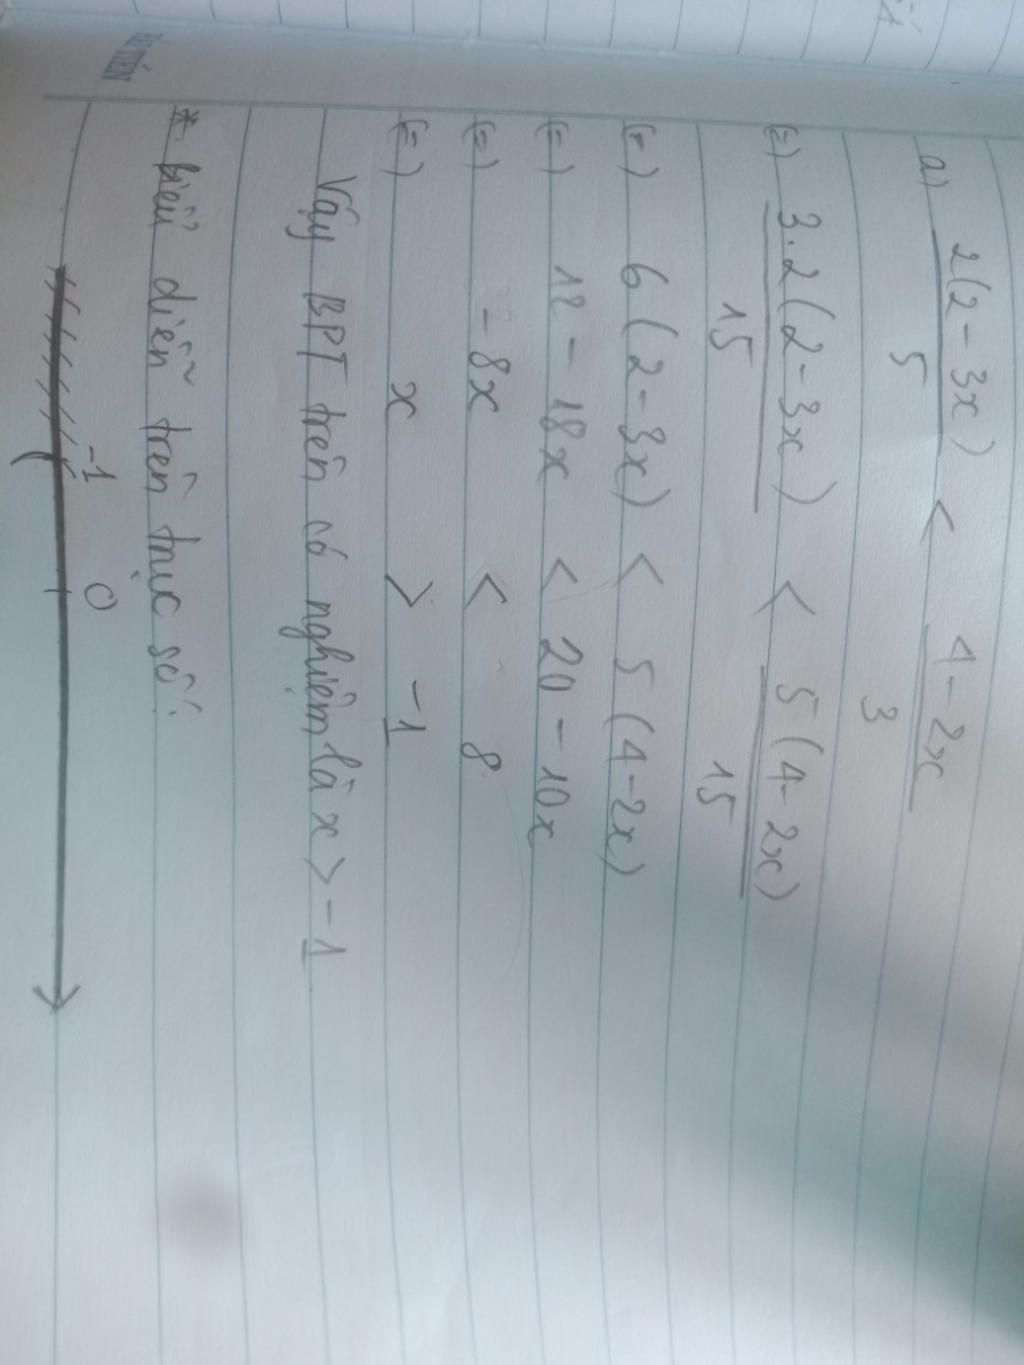 a) 2(2-3x)/5 < 4-2x/3
(=) 3.2(2-3x)/15 < 5(4-2x)/15
(=) 6(2-3x) < 5(4-2x)
(=) 12-18x < 20-10x
(=) -8x < 8
(=) x > -1
Vậy BPT trên có nghiệm là x > -1
* biểu diễn trên trục số:
-1 0